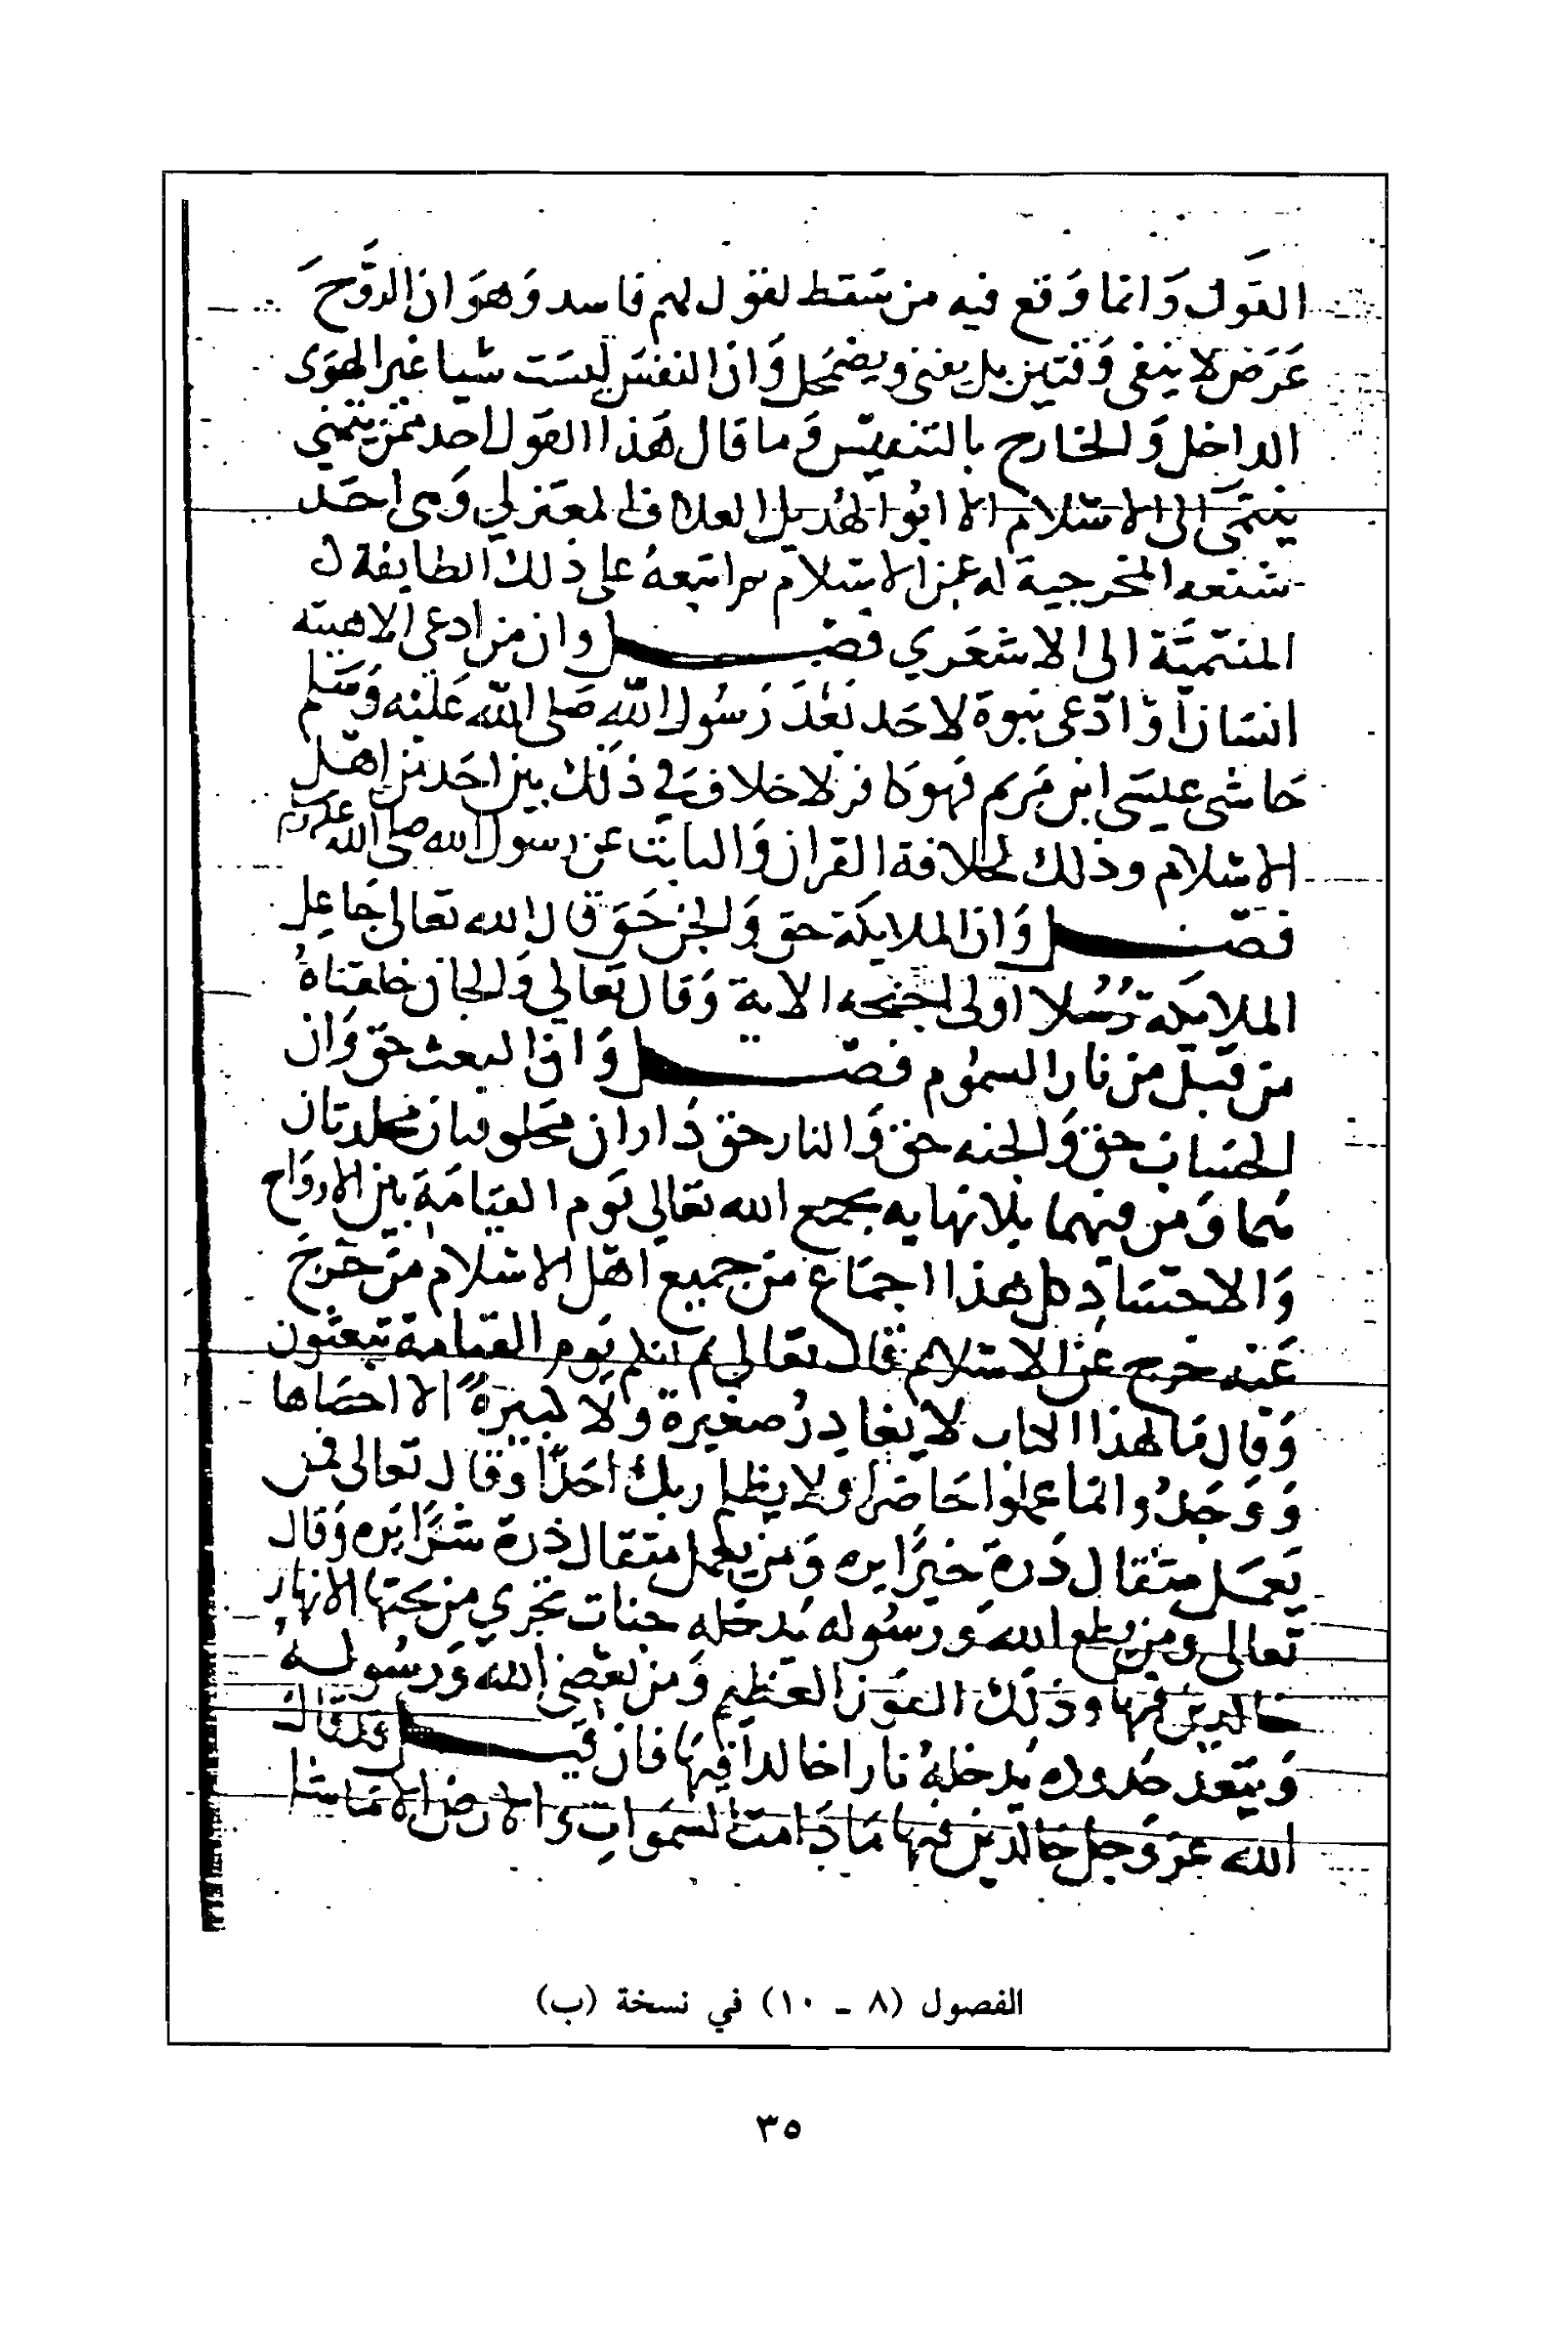 القول وانما وقع فيه من سقط لقول لهم فاسد وهو ان الروح
عرض لا يبقى وقتين بل يفنى ويضمحل وان النفس ليست شيا غير الهوى
الداخل والخارج بالتنفس وما قال هذا القول احد ممن ينتمي
ينتمى الى الاسلام الا ابو الهذيل العلاف المعتزلي وهى احد
شنعه المخرجية له عن الاسلام ثم اتبعه على ذلك الطايفة
المنتمية الى الاشعري فصل وان من ادعى الاهيته
انسان او ادعى نبوة لاحد بعد رسول الله صلى الله عليه وسلم
حاشى عيسى ابن مريم فهو كافر لا خلاف في ذلك بين احد من اهل
الاسلام وذلك لخلافة القران والثابت عن رسول الله صلى الله عليه وسلم
فصل وان الملايكة حق والجن حق قال الله تعالى جاعل
الملايكة رسلا اولى اجنحه الاية وقال تعالي والجان خلقناه
من قبل من نار السموم فصل وان البعث حق وان
الحساب حق والجنه حق والنار حق داران مخلوقتان مخلدتان
هما ومن فيهما بلا نهايه يجمع الله تعالي يوم القيامة بين الارواح
والاجساد كل هذا اجماع من جميع اهل الاسلام من خرج
عنه خرج عن الاسلام قال تعالي ثم انكم يوم القيامة تبعثون
وقال مالهذا الكتاب لا يغادر صغيرة ولا كبيرة الا احصاها
ووجدوا ما عملوا حاضرا ولا يظلم ربك احدا وقال تعالى فمن
يعمل مثقال ذرة خيرا يره ومن يعمل مثقال ذرة شرا يره وقال
تعالى ومن يطع الله ورسوله يدخله جنات تجري من تحتها الانهار
خالدين فيها وذلك الفوز العظيم ومن يعص الله ورسوله
ويتعد حدوده يدخله نارا خالدا فيها فان قيل قد قال
الله عز وجل خالدين فيها ما دامت السموات والارض الا ما شا
الفصول (٨ - ١٠) في نسخة (ب)
٣٥